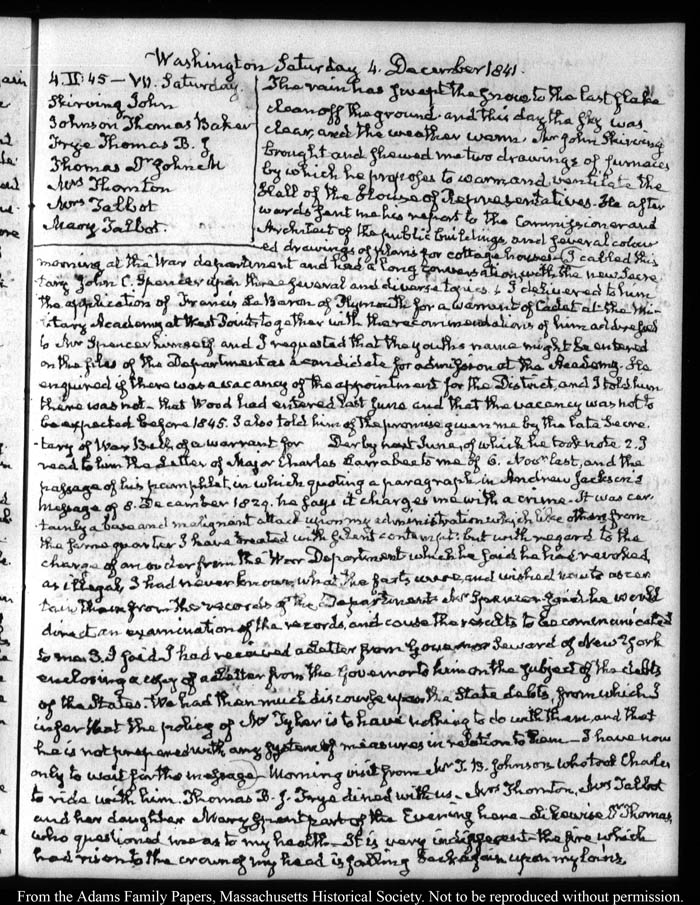 Washington Saturday 4. December 1841.
4. II: 45 – VII. Saturday
Skirving John
Johnson Thomas Baker
Frye Thomas B. J
Thomas Dr John M
Mrs Thornton
Mrs Talbot
Mary Talbot.
The rain has swept the snow to the last flake
clean off the ground. and this day the sky was
clear, and the weather warm. Mr John Skirving
brought and shewed me two drawings of furnaces
by which he proposes to warm and ventilate the
Hall of the House of Representatives. He after
wards sent me his report to the Commissioner and
Architect of the public buildings, and several colour
ed drawings of plans for cottage houses – I called this
morning at the War department and had a long conversation with the new Secre
tary John C. Spencer upon three several and diverse topics. 1 I delivered to him
the application of Francis LeBaron of Plymouth for a warrant of Cadet at the Mi-
-itary Academy at West Point, together with the recommendations of him addressed
to Mr Spencer himself and I requested that the youth's name might be entered
on the files of the Department as a candidate for admission at the Academy. He
enquired if there was a vacancy of the appointment for the District, and I told him
there was not – that Wood had entered last June and that the vacancy was not to
be expected before 1845. I also told him of the promise given me by the late Secre.
-tary of War Bell, of a warrant for Derby next June, of which he took note. 2. I
read to him the Letter of Major Charles Larrabee to me of 6. Novr last, and the
passage of his pamphlet, in which quoting a paragraph in Andrew Jackson's
Message of 8. December 1829. he says it charges me with a crime. It was cer-
tainly a base and malignant attack upon my administration which like others from
the same quarter I have treated with silent contempt: but with regard to the
charge of an order from the War Department which he said he had revoked,
as illegal, I had never known, what the facts were, and wished now to ascer
tain them from the records of the Department. Mr Spencer said he would
direct an examination of the records, and cause the results to be communicated
to me. 3. I said I had received a Letter from Governor Seward of New York
enclosing a copy of a Letter from the Governor to him on the subject of the debts
of the States. We had then much discourse upon the State debts, from which I
infer that the policy of Mr Tyler is to have nothing to do with them, and that
he is not prepared with any system of measures in relation to them – I have now
only to wait for the message – Morning visit from Mr T. B. Johnson who took Charles
to ride with him. Thomas B. J. Frye dined with us. Mrs Thornton, Mrs Talbot
and her daughter Mary spent part of the Evening here – Likewise Dr Thomas,
who questioned me as to my health – It is very indifferent – the fire which
had risen to the crown of my head is falling back again upon my loins,
From the Adams Family Papers, Massachusetts Historical Society. Not to be reproduced without permission.